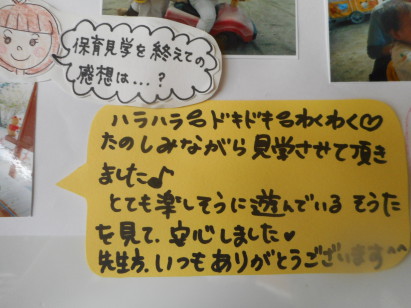 保育見学を終えての
感想は…?
ハラハラ名ドキドキ名わくわく♡
たのしみながら見学させて頂き
ました♪
とても楽しそうに遊んでいる そうた
を見て、安心しました♥
先生方、いつもありがとうございます^^